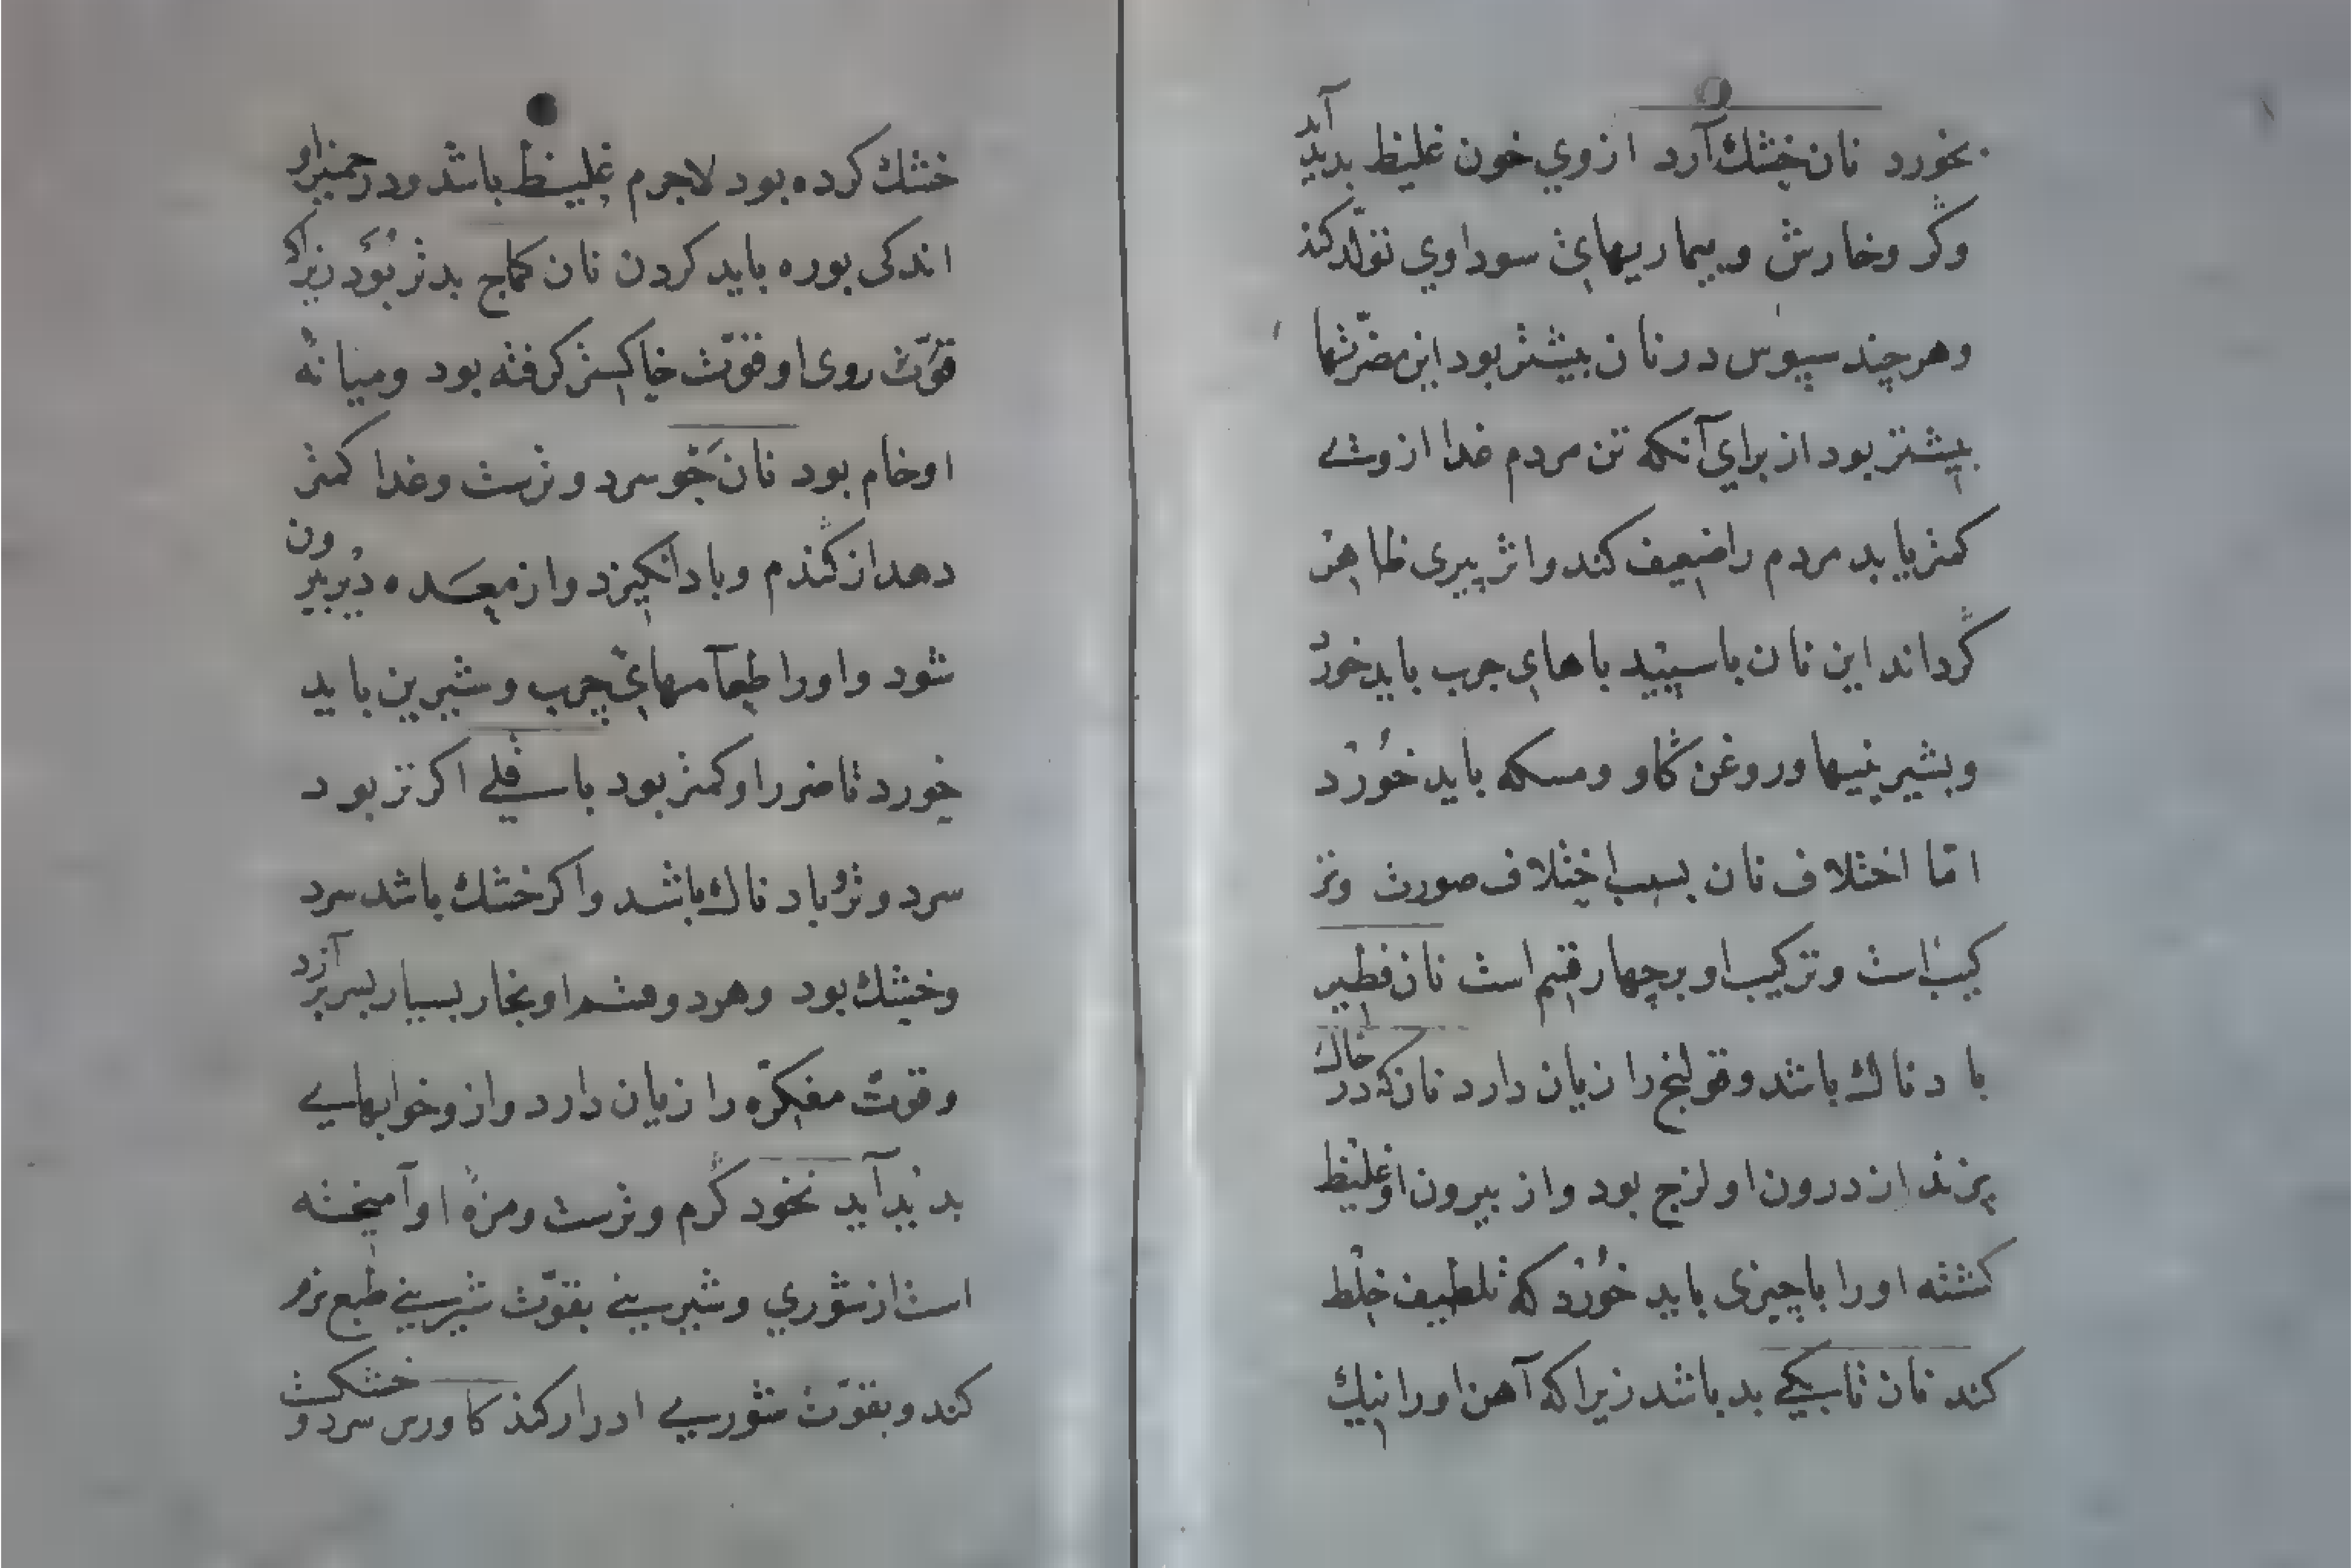 بخورد نان خشك آرد ازوي خون غليظ بديد آيد
وگر وخارش وبيماريهاي سوداوي تولد كند
وهرچند سپوس درنان بيشتر بود اين مضرتها
بيشتر بود از براي آنكه تن مردم غدا ازوي
كمتر يابد مردم را ضعيف كند واثر پيري ظاهر
گرداند اين نان با سپيد باهاي چرب بايد خورد
وبشيرينيها وروغن گاو ومسكه بايد خورد
اما اختلاف نان بسبب اختلاف صورت وتر
كيب است وتركيب او برچهار قسم است نان فطير
باد ناك باشد وقولنج را زيان دارد نان كه در خاك
پزند از درون او لزج بود واز بيرون او غليظ
كشته او را با چيزى بايد خورد كه تلطيف خلط
كند نان تابكي بد باشد زيرا كه آهن او را نيك
خشك كرده بود لاجرم غليظ باشد ودر خمير او
اندكى بوره بايد كردن نان كماج بدتر بود زيراك
قوت روى او قوت خاكستر كرفته بود وميانه
او خام بود نان جو سرد وترست وغدا كمتر
دهد از گندم وباد انكيزد واز معده دير بيرون
شود واو را طعامهاي چرب وشيرين بايد
خورد تا ضرر او كمتر بود باقلي اكر تر بود
سرد وتر وباد ناك باشد واكر خشك باشد سرد
وخشك بود وهر دو قسم او بخار بسيار بسر بر آرد
وقوت مفكره را زيان دارد وازو خوابهاي
بد بديد آيد نخود گرم وترست ومزه او آميخته
است از شوري وشيريني بقوت شيريني طبع نرم
كند وبقوت شوري ادرار كند كاورس سرد وخشكست